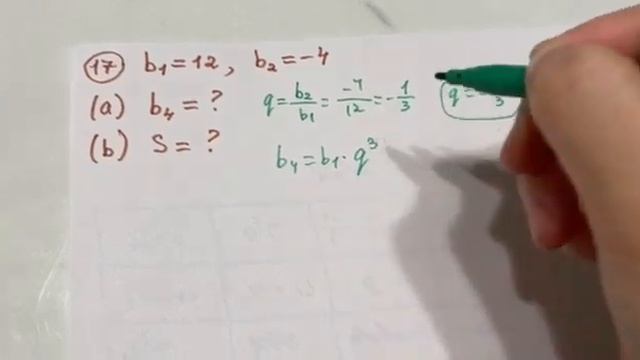 17 b₁ = 12, b₂ = -4
(a) b₄ = ? q = b₂/b₁ = -4/12 = -1/3
(b) S = ?
b₄ = b₁ · q³